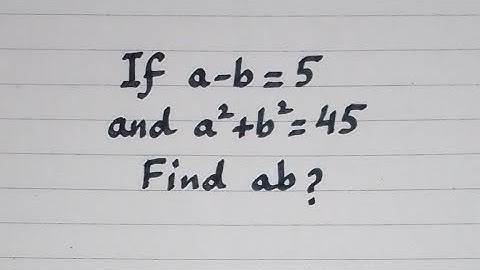 If a-b=5
and a²+b²=45
Find ab?